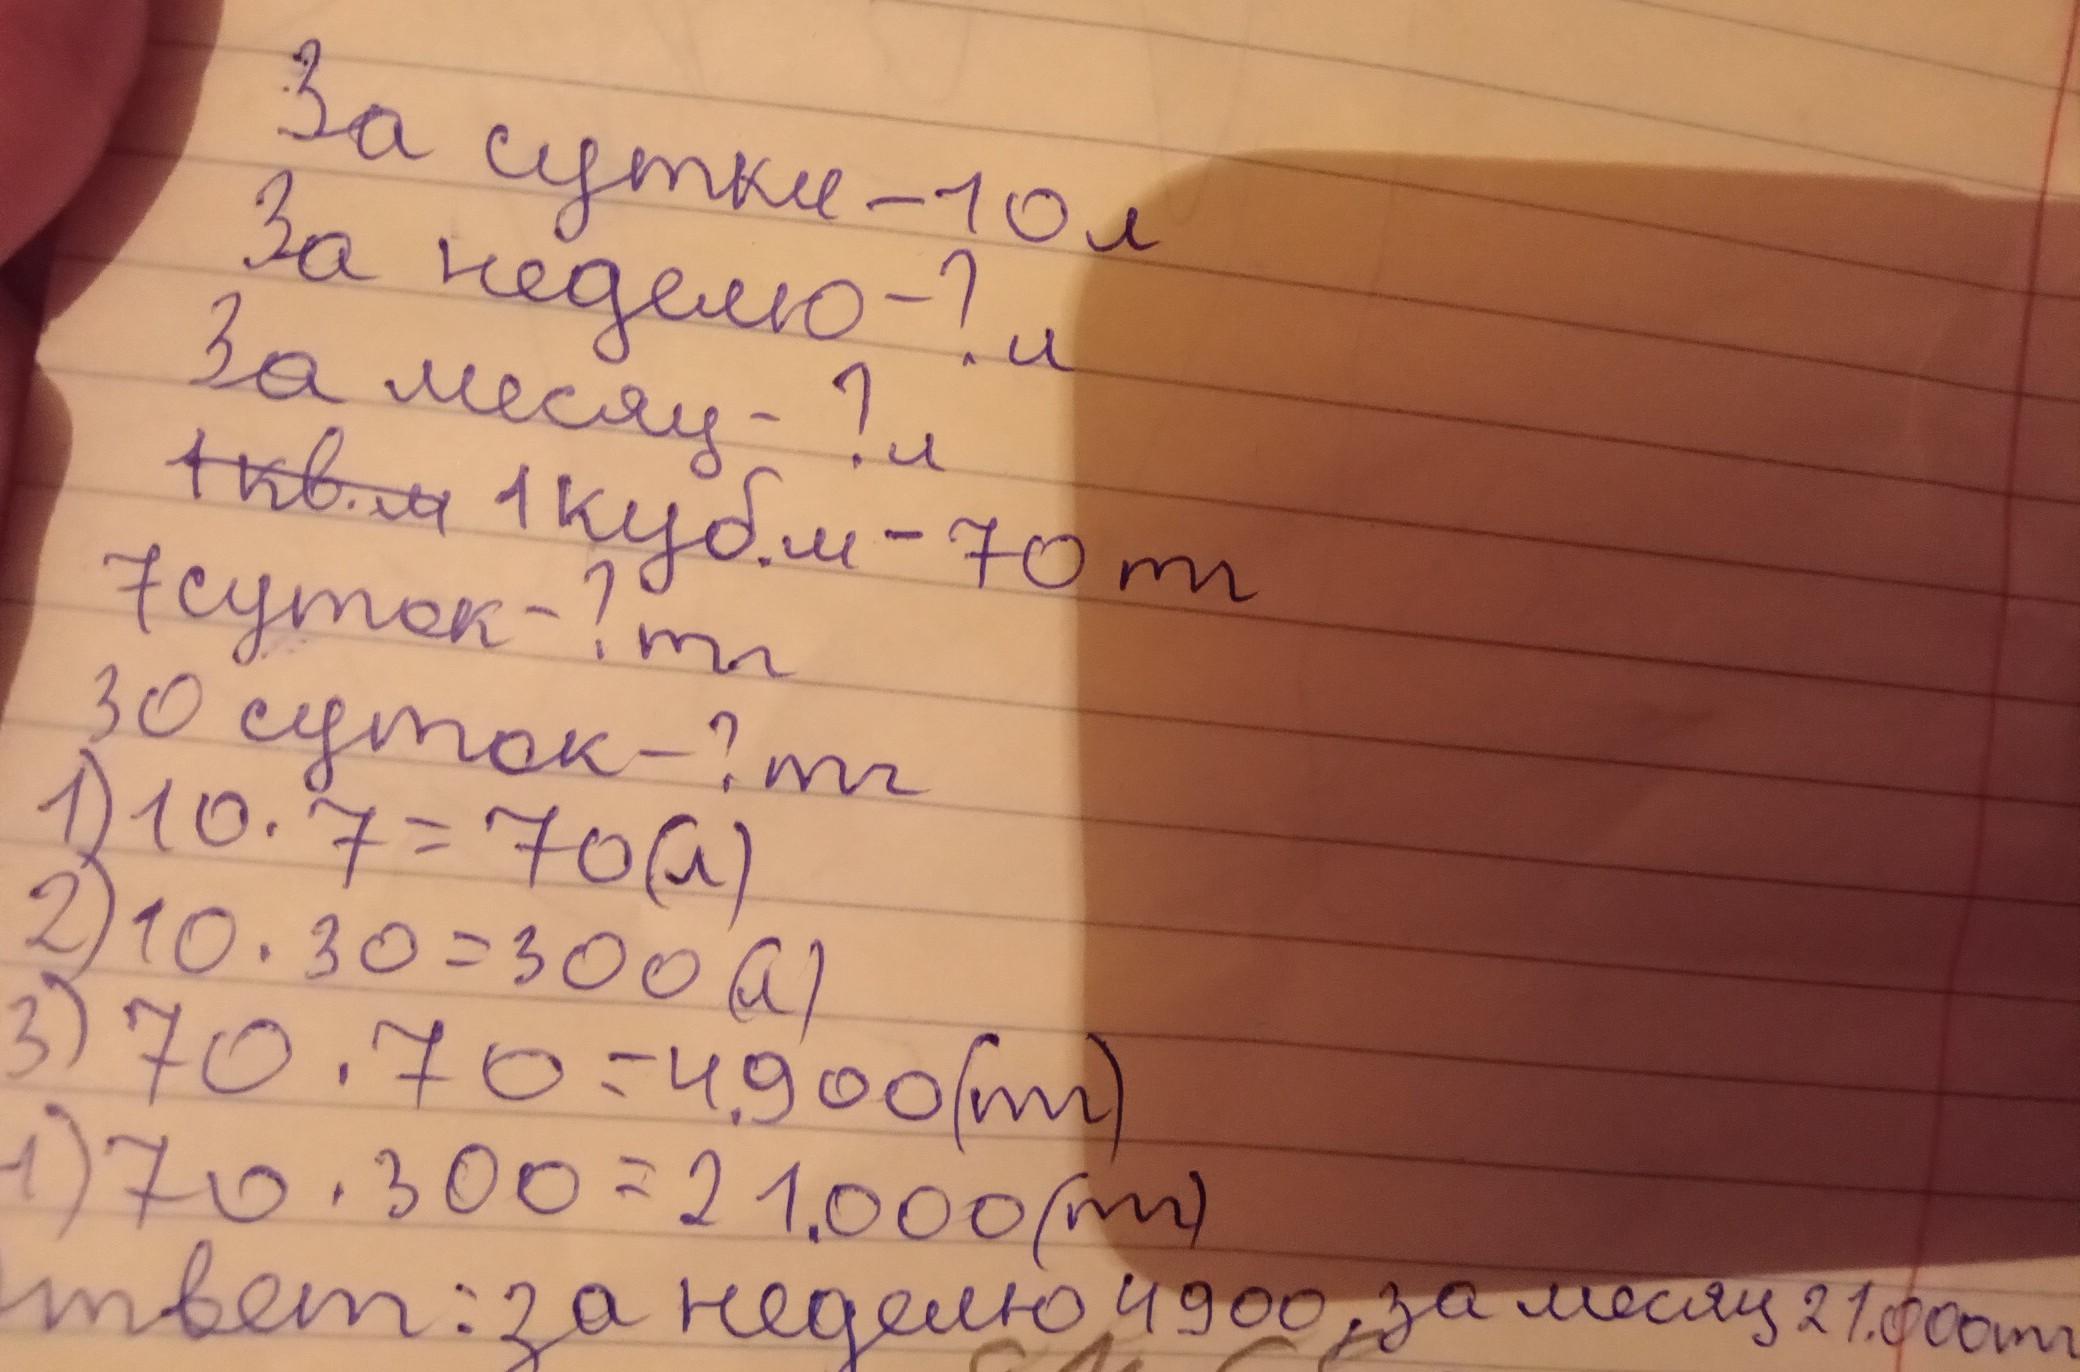 За сутки - 10 л
За неделю - ? л
За месяц - ? л
1 кв.м 1 куб.м - 70 тг
7 суток - ? тг
30 суток - ? тг
1) 10 · 7 = 70 (л)
2) 10 · 30 = 300 (л)
3) 70 · 70 = 4.900 (тг)
4) 70 · 300 = 21.000 (тг)
Ответ: за неделю 4900, за месяц 21.000тг